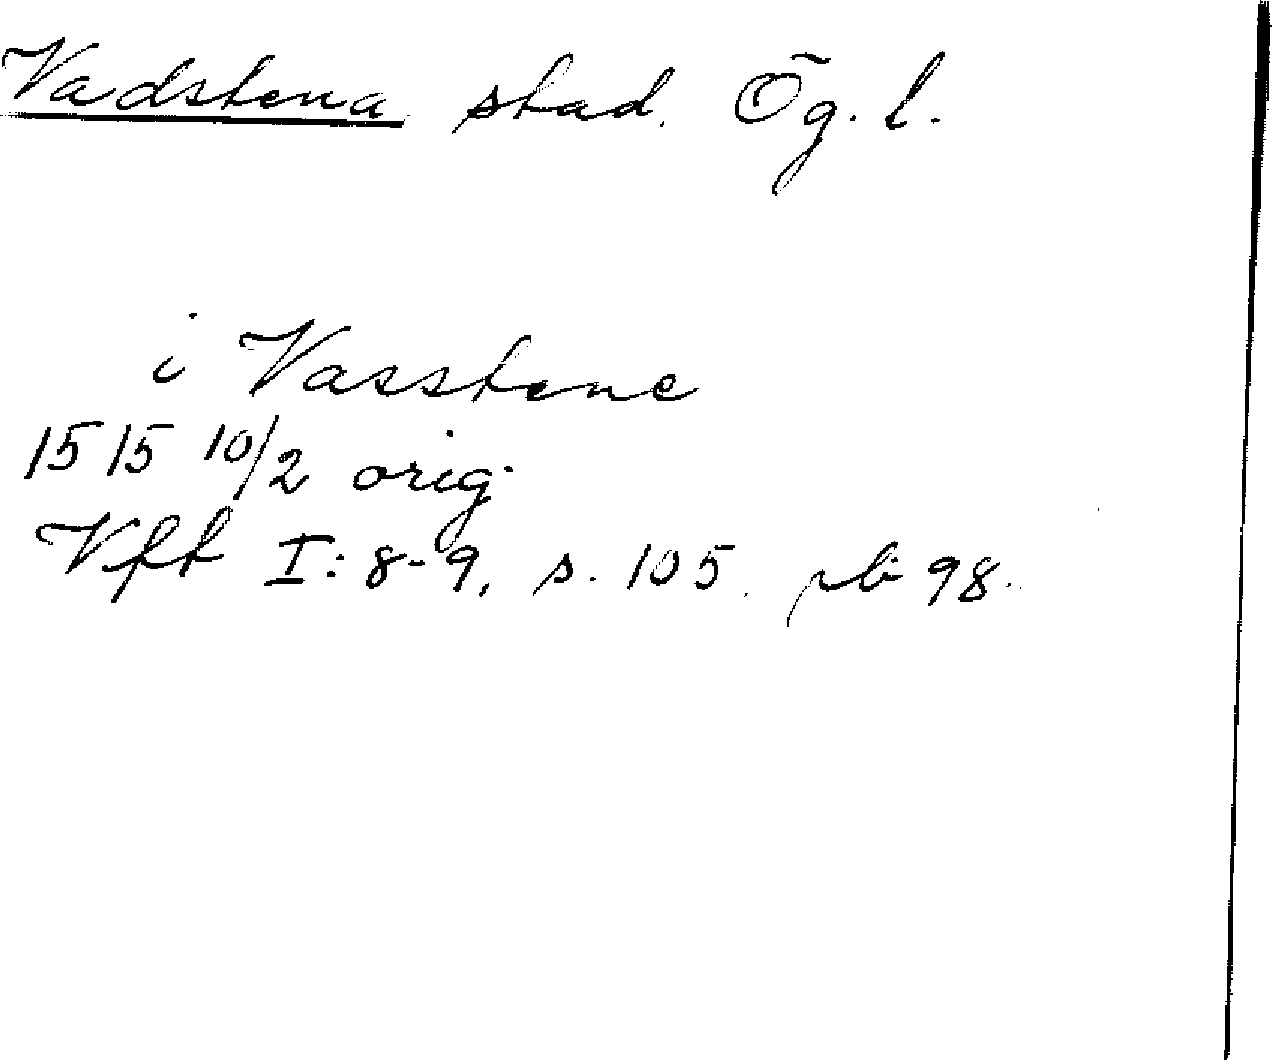 Vadstena stad. Ög. l.
i Vasstene
1515 10/2 orig.
Vft I: 8-9, s. 105. nb 98.